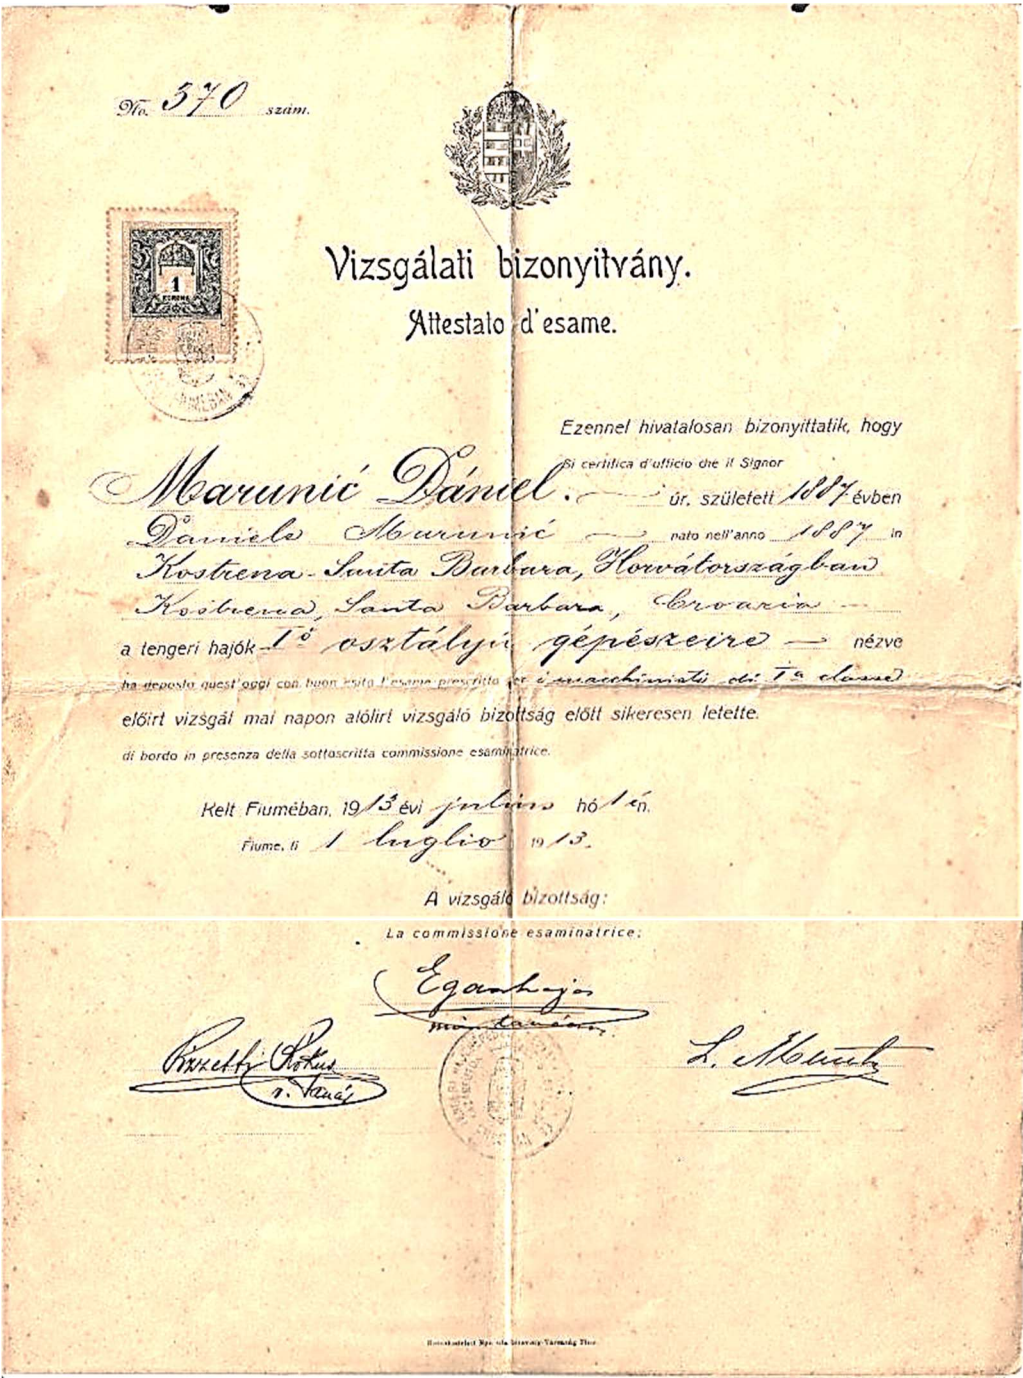 No. 570 szám.
1
KORONA
Vizsgálati bizonyitvány.
Attestato d'esame.
Ezennel hivatalosan bizonyittatik, hogy
Si certifica d'ufficio che il Signor
Marunić Dániel. úr, született 1887 évben
Daniele Marunić nato nell'anno 1887 in
Kostrena - Santa Barbara, Horvátországban
Kostrena, Santa Barbara, Croazia
a tengeri hajók I ő osztályú gépészeire nézve
ha deposto quest'oggi con buon esito l'esame prescritto per i macchinisti di Iª classe
előirt vizsgát mai napon alólirt vizsgáló bizottság előtt sikeresen letette.
di bordo in presenza della sottoscritta commissione esaminatrice.
Kelt Fiuméban, 1913 évi julius hó 1 én.
Fiume, li 1 luglio 1913.
A vizsgáló bizottság:
La commissione esaminatrice:
Egan Lajos
Rokus